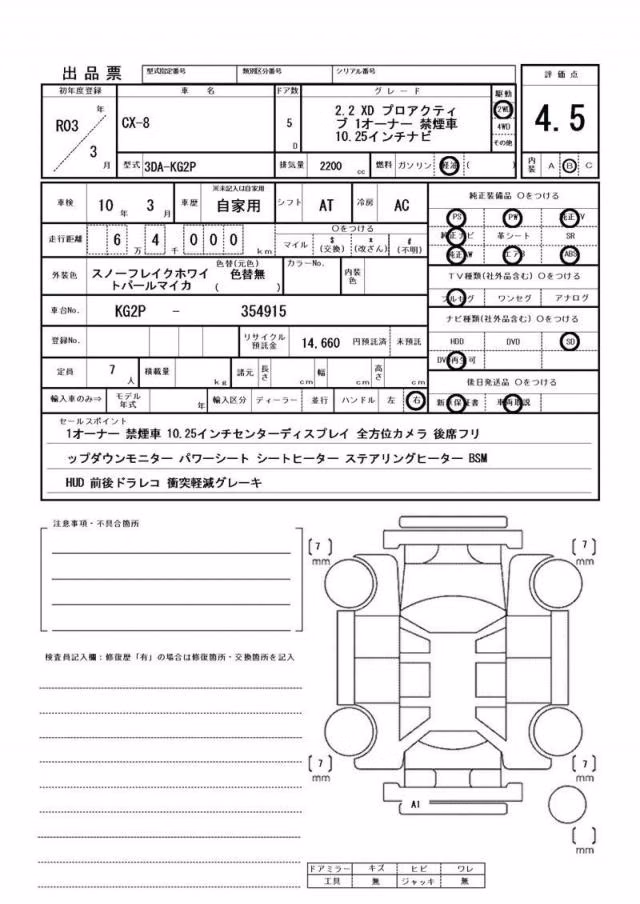 出品票 型式指定番号 類別区分番号 シリアル番号
評価点
4.5
内装 A B C
初年度登録 車名 ドア数 グレード 駆動
R03 年 3 月
CX-8
5 D
2.2 XD プロアクティ
ブ 1オーナー 禁煙車
10.25インチナビ
2WD
4WD
その他
型式 3DA-KG2P 排気量 2200 cc 燃料 ガソリン 軽油 ( )
車検 10 年 3 月 車歴 ※未記入は自家用 自家用 シフト AT 冷房 AC
走行距離 6 万 4 千 0 0 0 km
○をつける
マイル $ (交換) x (改ざん) # (不明)
外装色 スノーフレイクホワイ
トパールマイカ
色替(元色)
色替無
( )
カラーNo. 内装色
車台No. KG2P - 354915
登録No. リサイクル預託金 14,660 円預託済 未預託
定員 7 人 積載量 kg 諸元 長さ cm 幅 cm 高さ cm
輸入車のみ⇒ モデル年式 年 輸入区分 ディーラー 並行 ハンドル 左 右
純正装備品 ○をつける
PS PW 純正TV
純正ナビ 革シート SR
純正AW エアB ABS
TV種類(社外品含む) ○をつける
フルセグ ワンセグ アナログ
ナビ種類(社外品含む) ○をつける
HDD DVD SD
DVD再生可
後日発送品 ○をつける
新車保証書 車両取説
セールスポイント
1オーナー 禁煙車 10.25インチセンターディスプレイ 全方位カメラ 後席フリ
ップダウンモニター パワーシート シートヒーター ステアリングヒーター BSM
HUD 前後ドラレコ 衝突軽減グレーキ
注意事項・不具合箇所
検査員記入欄:修復歴「有」の場合は修復箇所・交換箇所を記入
( 7 ) mm
( 7 ) mm
( 7 ) mm
( 7 ) mm
A1
( ) mm
ドアミラー キズ ヒビ ワレ
工具 無 ジャッキ 無